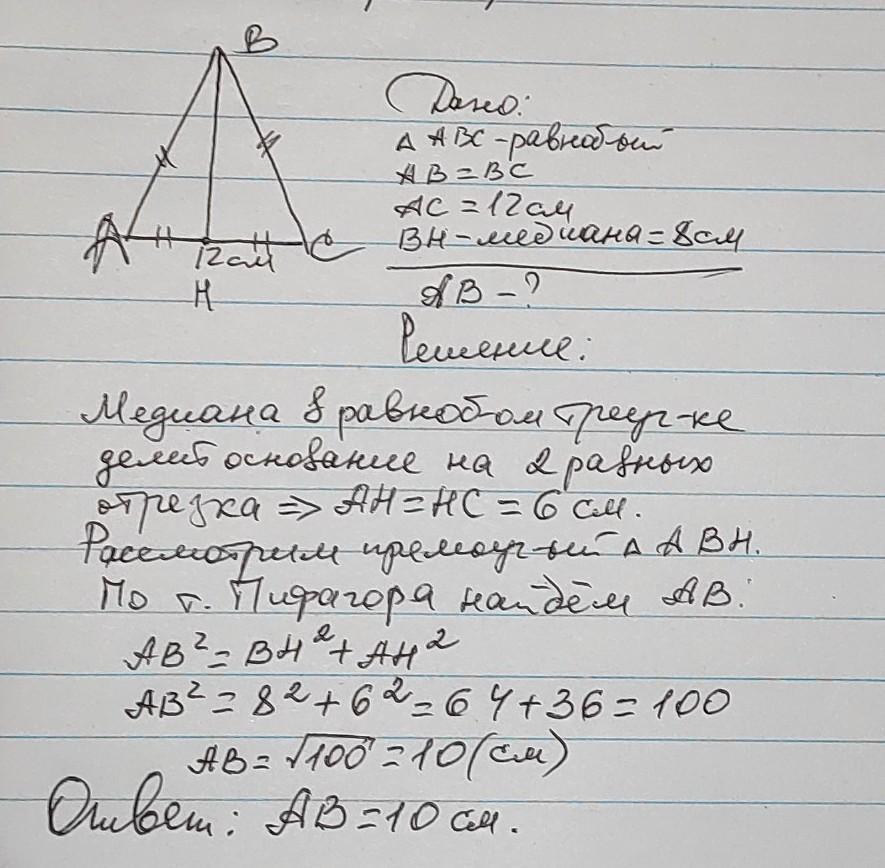 B
A
C
12 см
H
Дано:
△ ABC - равноб-ый
AB = BC
AC = 12 см
BH - медиана = 8 см
AB - ?
Решение:
Медиана в равноб-ом треуг-ке
делит основание на 2 равных
отрезка => AH = HC = 6 см.
Рассмотрим прямоуг-ый △ ABH.
По т. Пифагора найдём AB:
AB² = BH² + AH²
AB² = 8² + 6² = 64 + 36 = 100
AB = √100 = 10 (см)
Ответ: AB = 10 см.